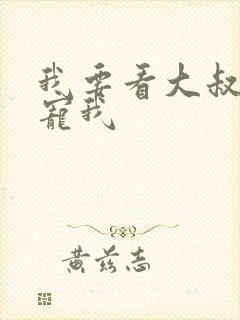 我要看大叔
寵我
黄兹志